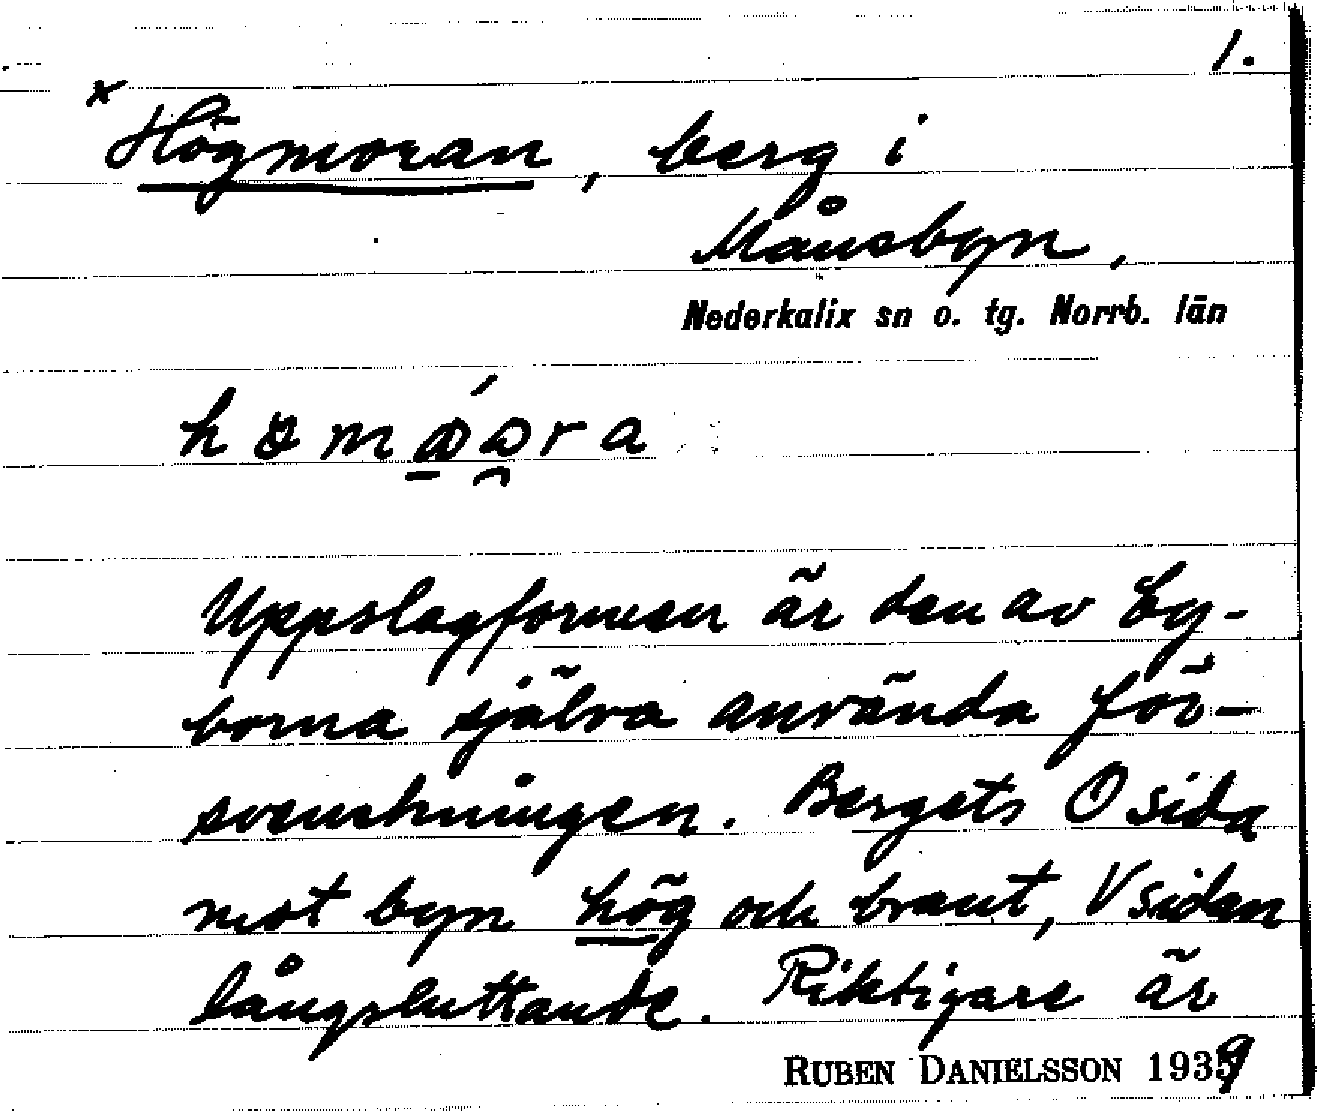 1.
× Högmoran, berg i
Månsbyn,
Nederkalix sn o. tg. Norrb. län
Uppslagformen är den av by-
borna själva använda för-
svenskningen. Bergets O sida
mot byn hög och brant, V sidan
långsluttande. Riktigare är
RUBEN DANIELSSON 1939